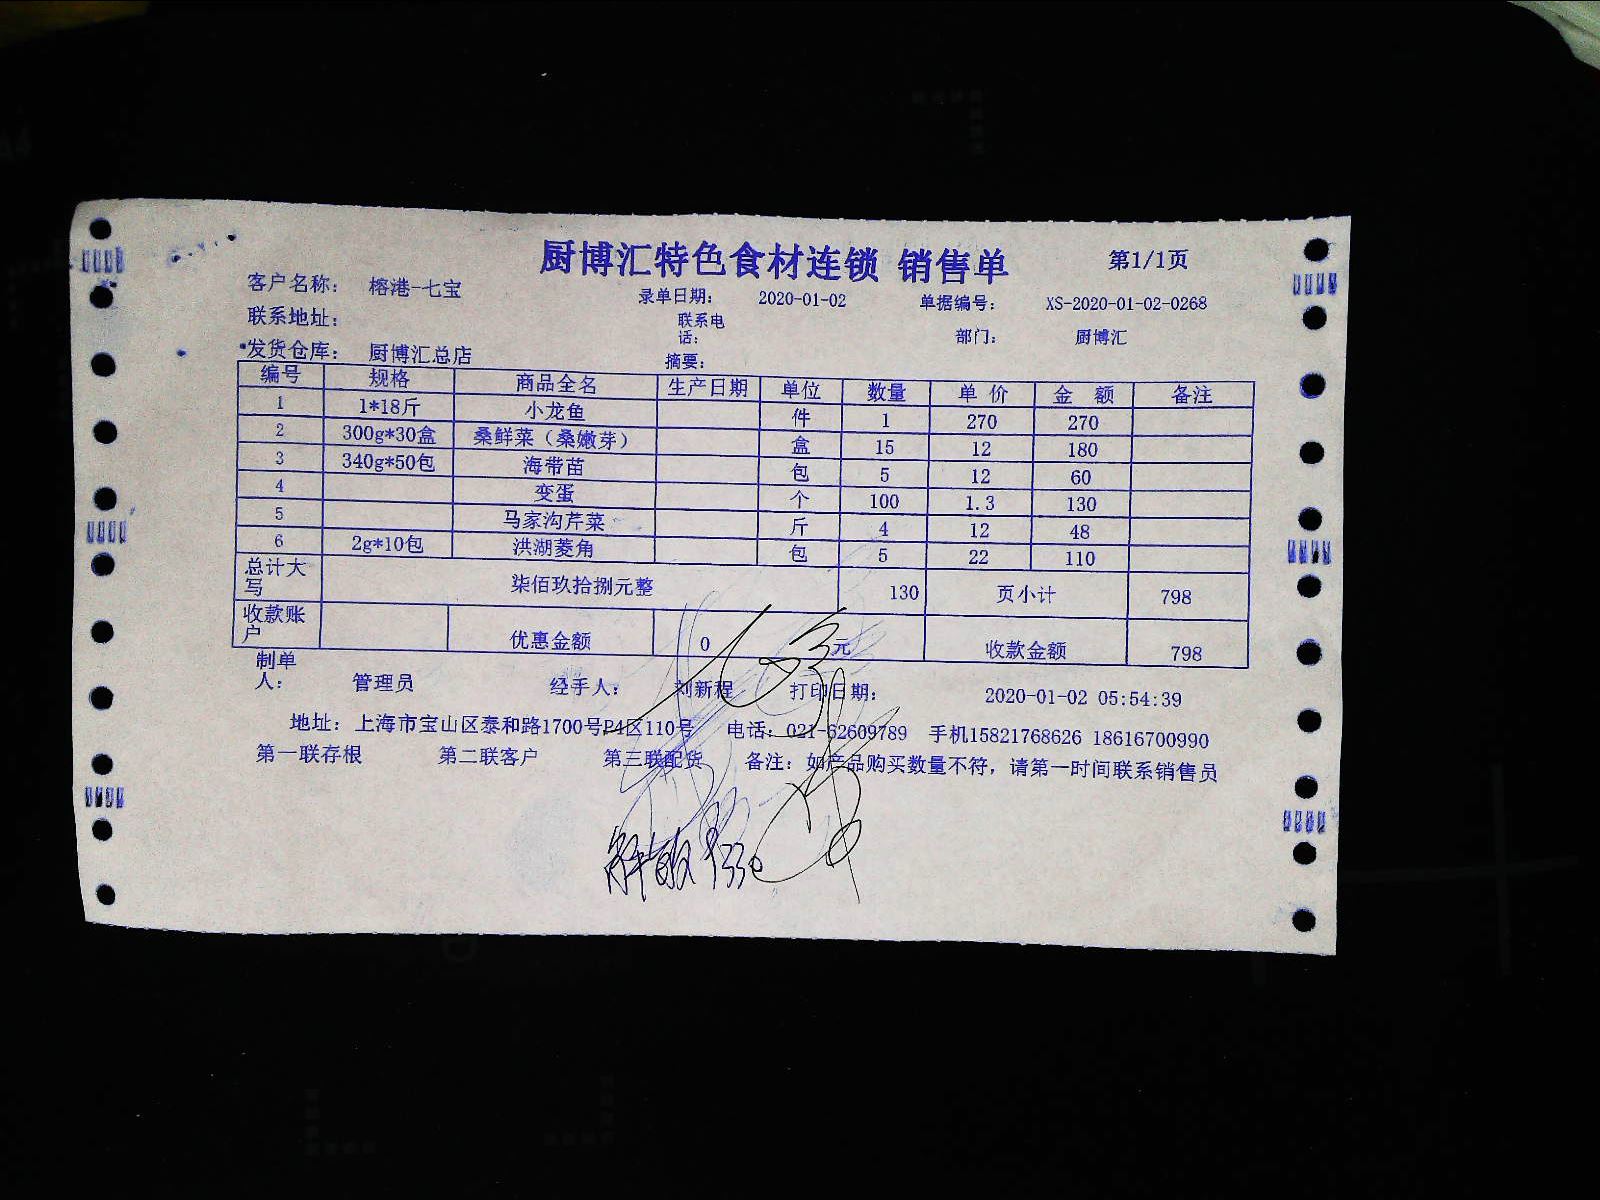 厨博汇特色食材连锁 销售单 第1/1页
客户名称： 榕港-七宝 录单日期： 2020-01-02 单据编号： XS-2020-01-02-0268
联系地址： 联系电话： 部门： 厨博汇
发货仓库： 厨博汇总店 摘要：
编号 规格 商品全名 生产日期 单位 数量 单 价 金 额 备注
1 1*18斤 小龙鱼 件 1 270 270
2 300g*30盒 桑鲜菜（桑嫩芽） 盒 15 12 180
3 340g*50包 海带苗 包 5 12 60
4 变蛋 个 100 1.3 130
5 马家沟芹菜 斤 4 12 48
6 2g*10包 洪湖菱角 包 5 22 110
总计大写 柒佰玖拾捌元整 130 页小计 798
收款账户 优惠金额 0 元 收款金额 798
制单人： 管理员 经手人： 刘新程 打印日期： 2020-01-02 05:54:39
地址：上海市宝山区泰和路1700号P4区110号 电话：021-62609789 手机15821768626 18616700990
第一联存根 第二联客户 第三联配货 备注：如产品购买数量不符，请第一时间联系销售员